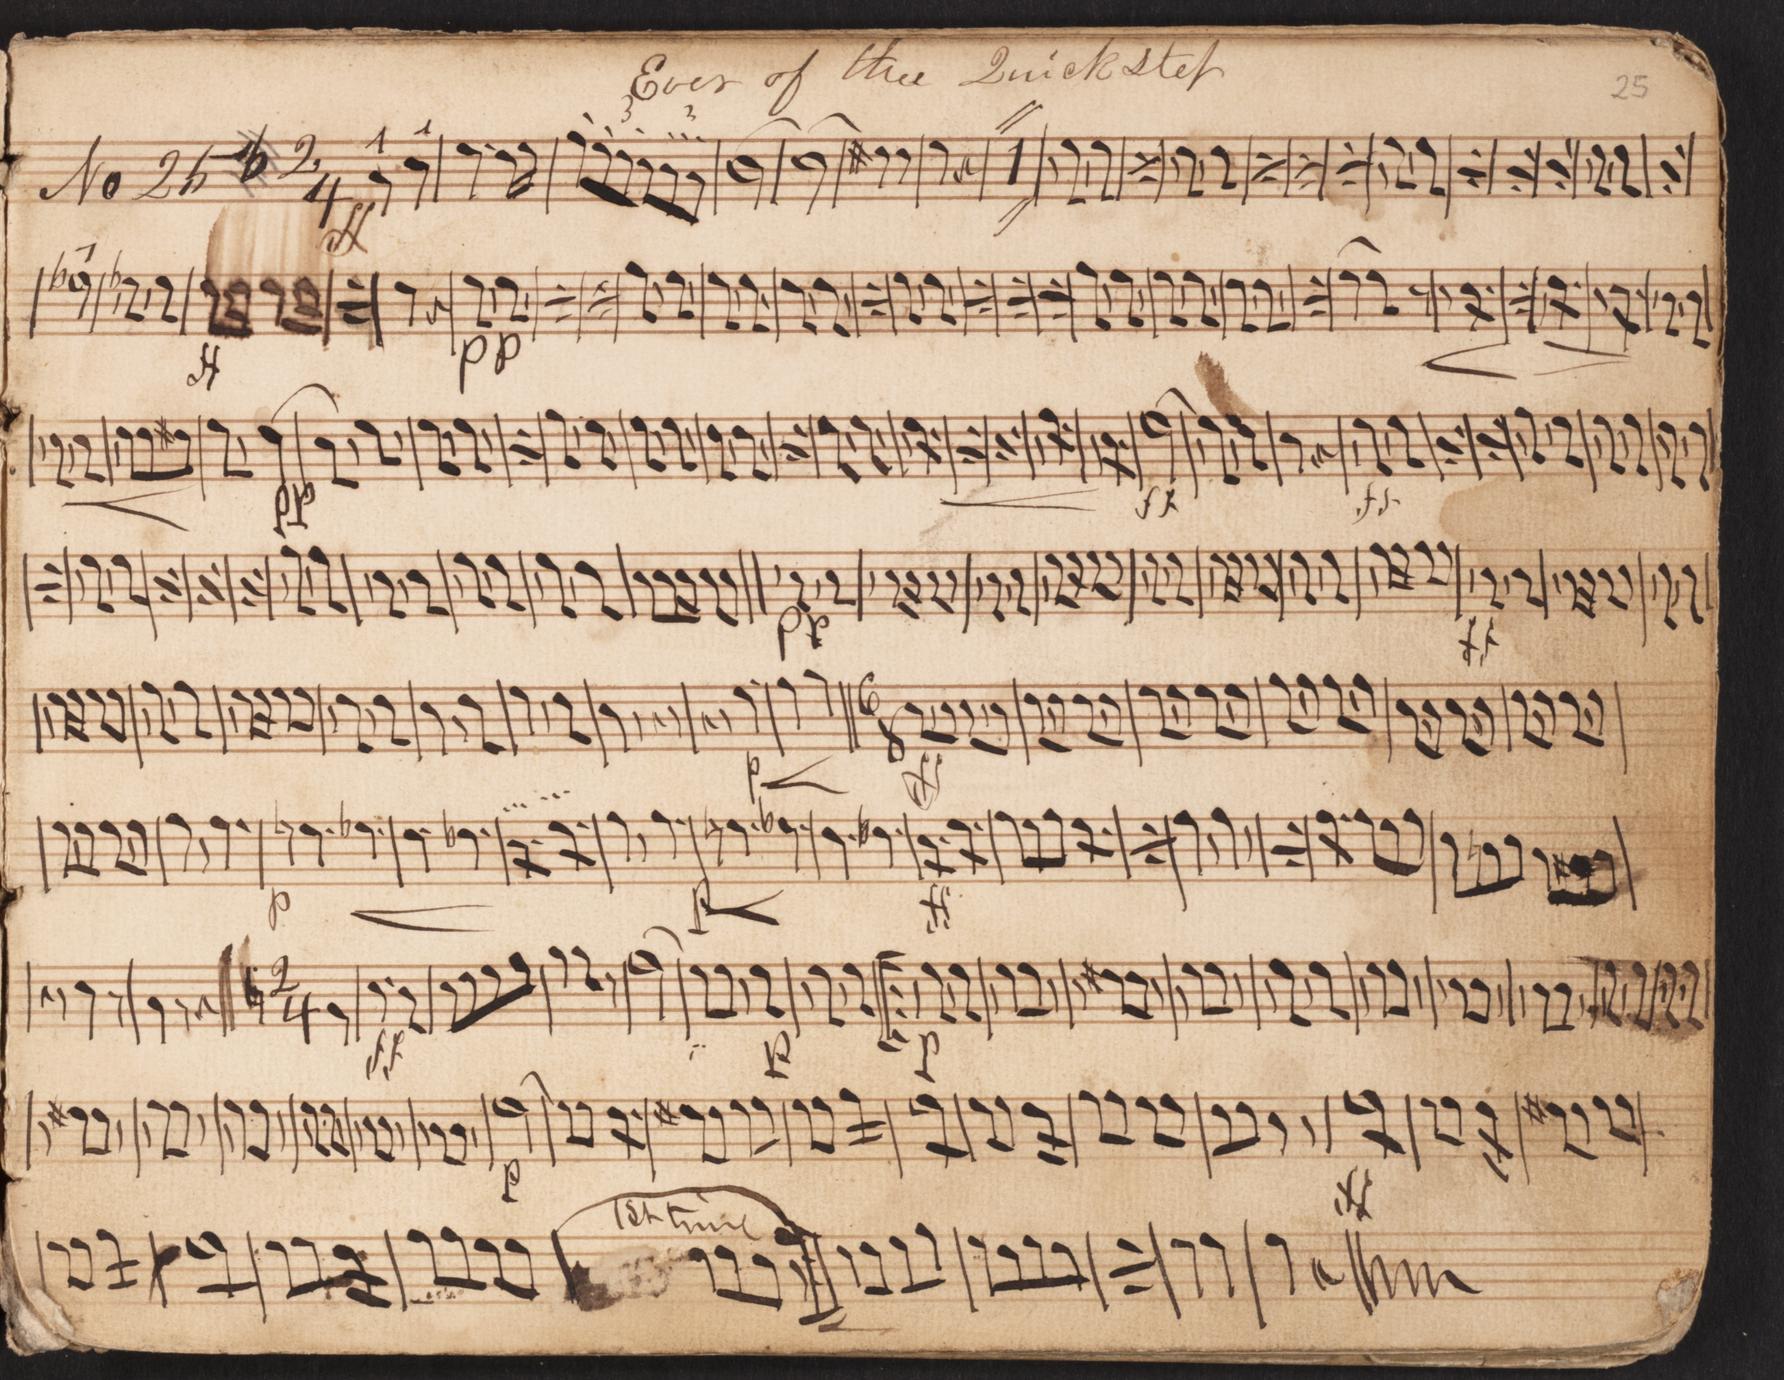 Ever of thee Quickstep
25
No 25 2/4
ff
ff
pp
pp
ff
ff
pp
ff
6/8
p
ff
p
p
ff
2/4
ff
p
p
p
ff
1st time